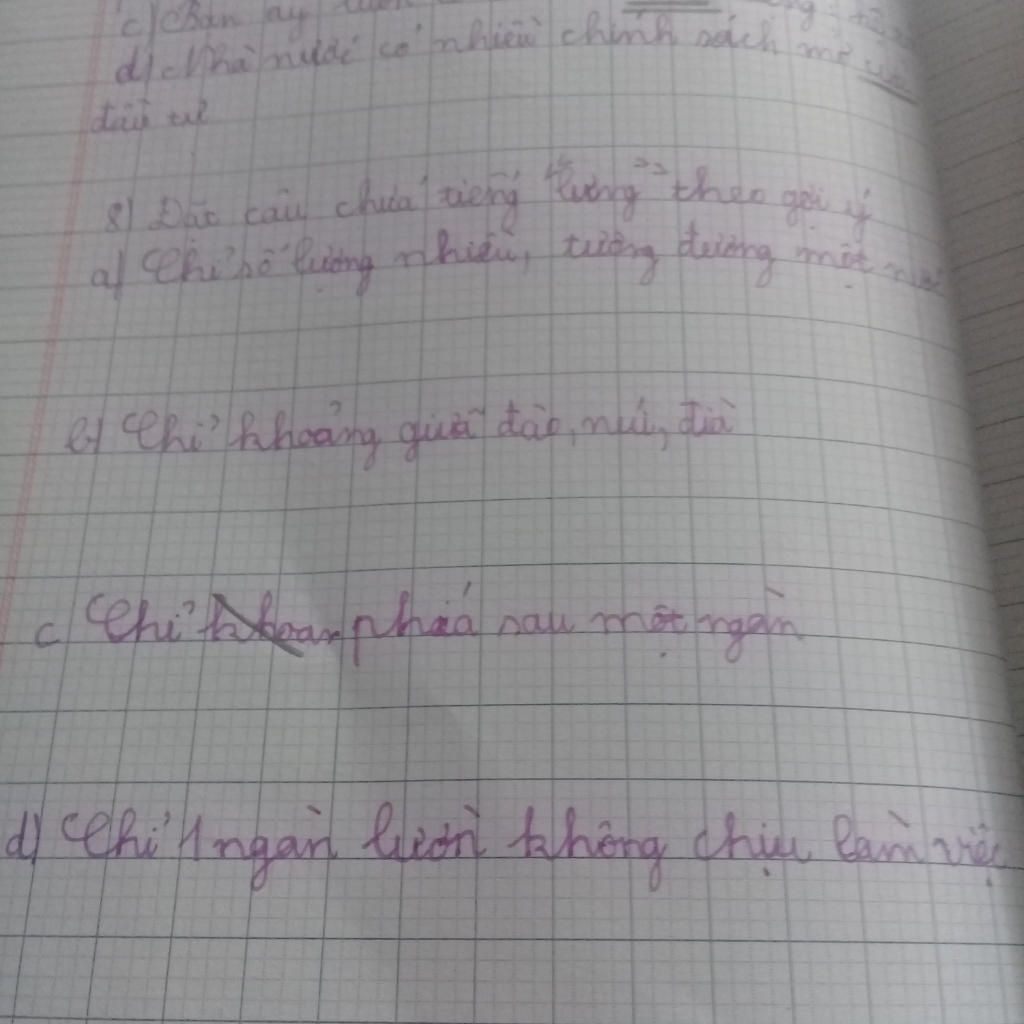 c)
d) Nhà nước có nhiều chính sách mở
đầu tư
8) Đặt câu chứa tiếng "lưng" theo gợi ý
a) Chỉ số lượng nhiều, tương đương một
b) Chỉ khoảng giữa đào, núi, đồi
c Chỉ phiá sau một ngàn
d) Chỉ 1 ngàn lười không chịu làm việc